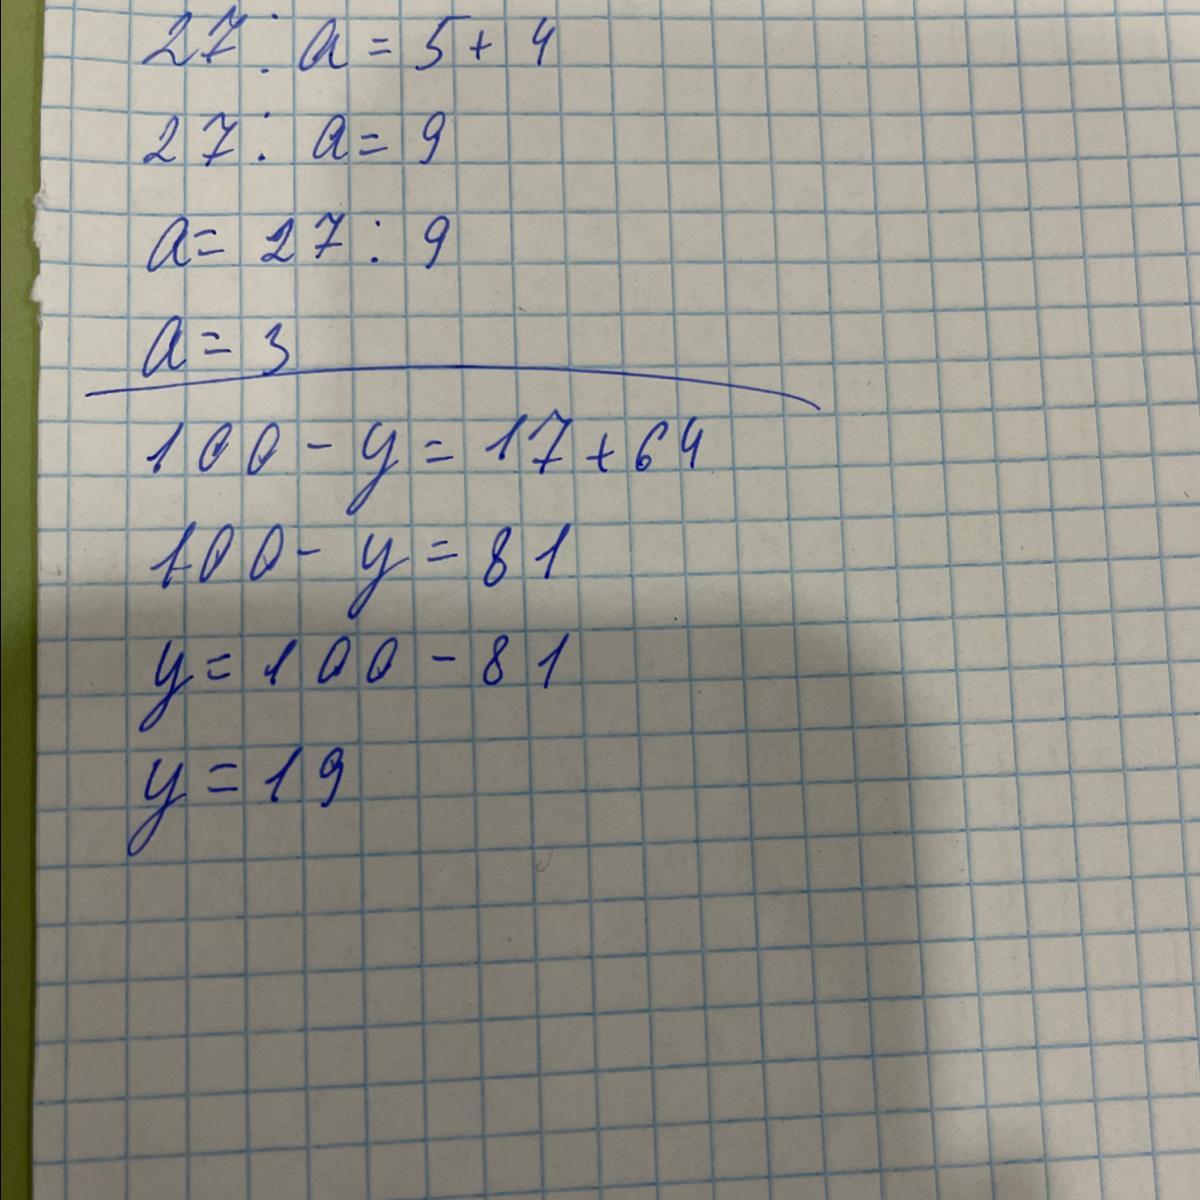 27 : a = 5 + 4
27 : a = 9
a = 27 : 9
a = 3
100 - y = 17 + 64
100 - y = 81
y = 100 - 81
y = 19